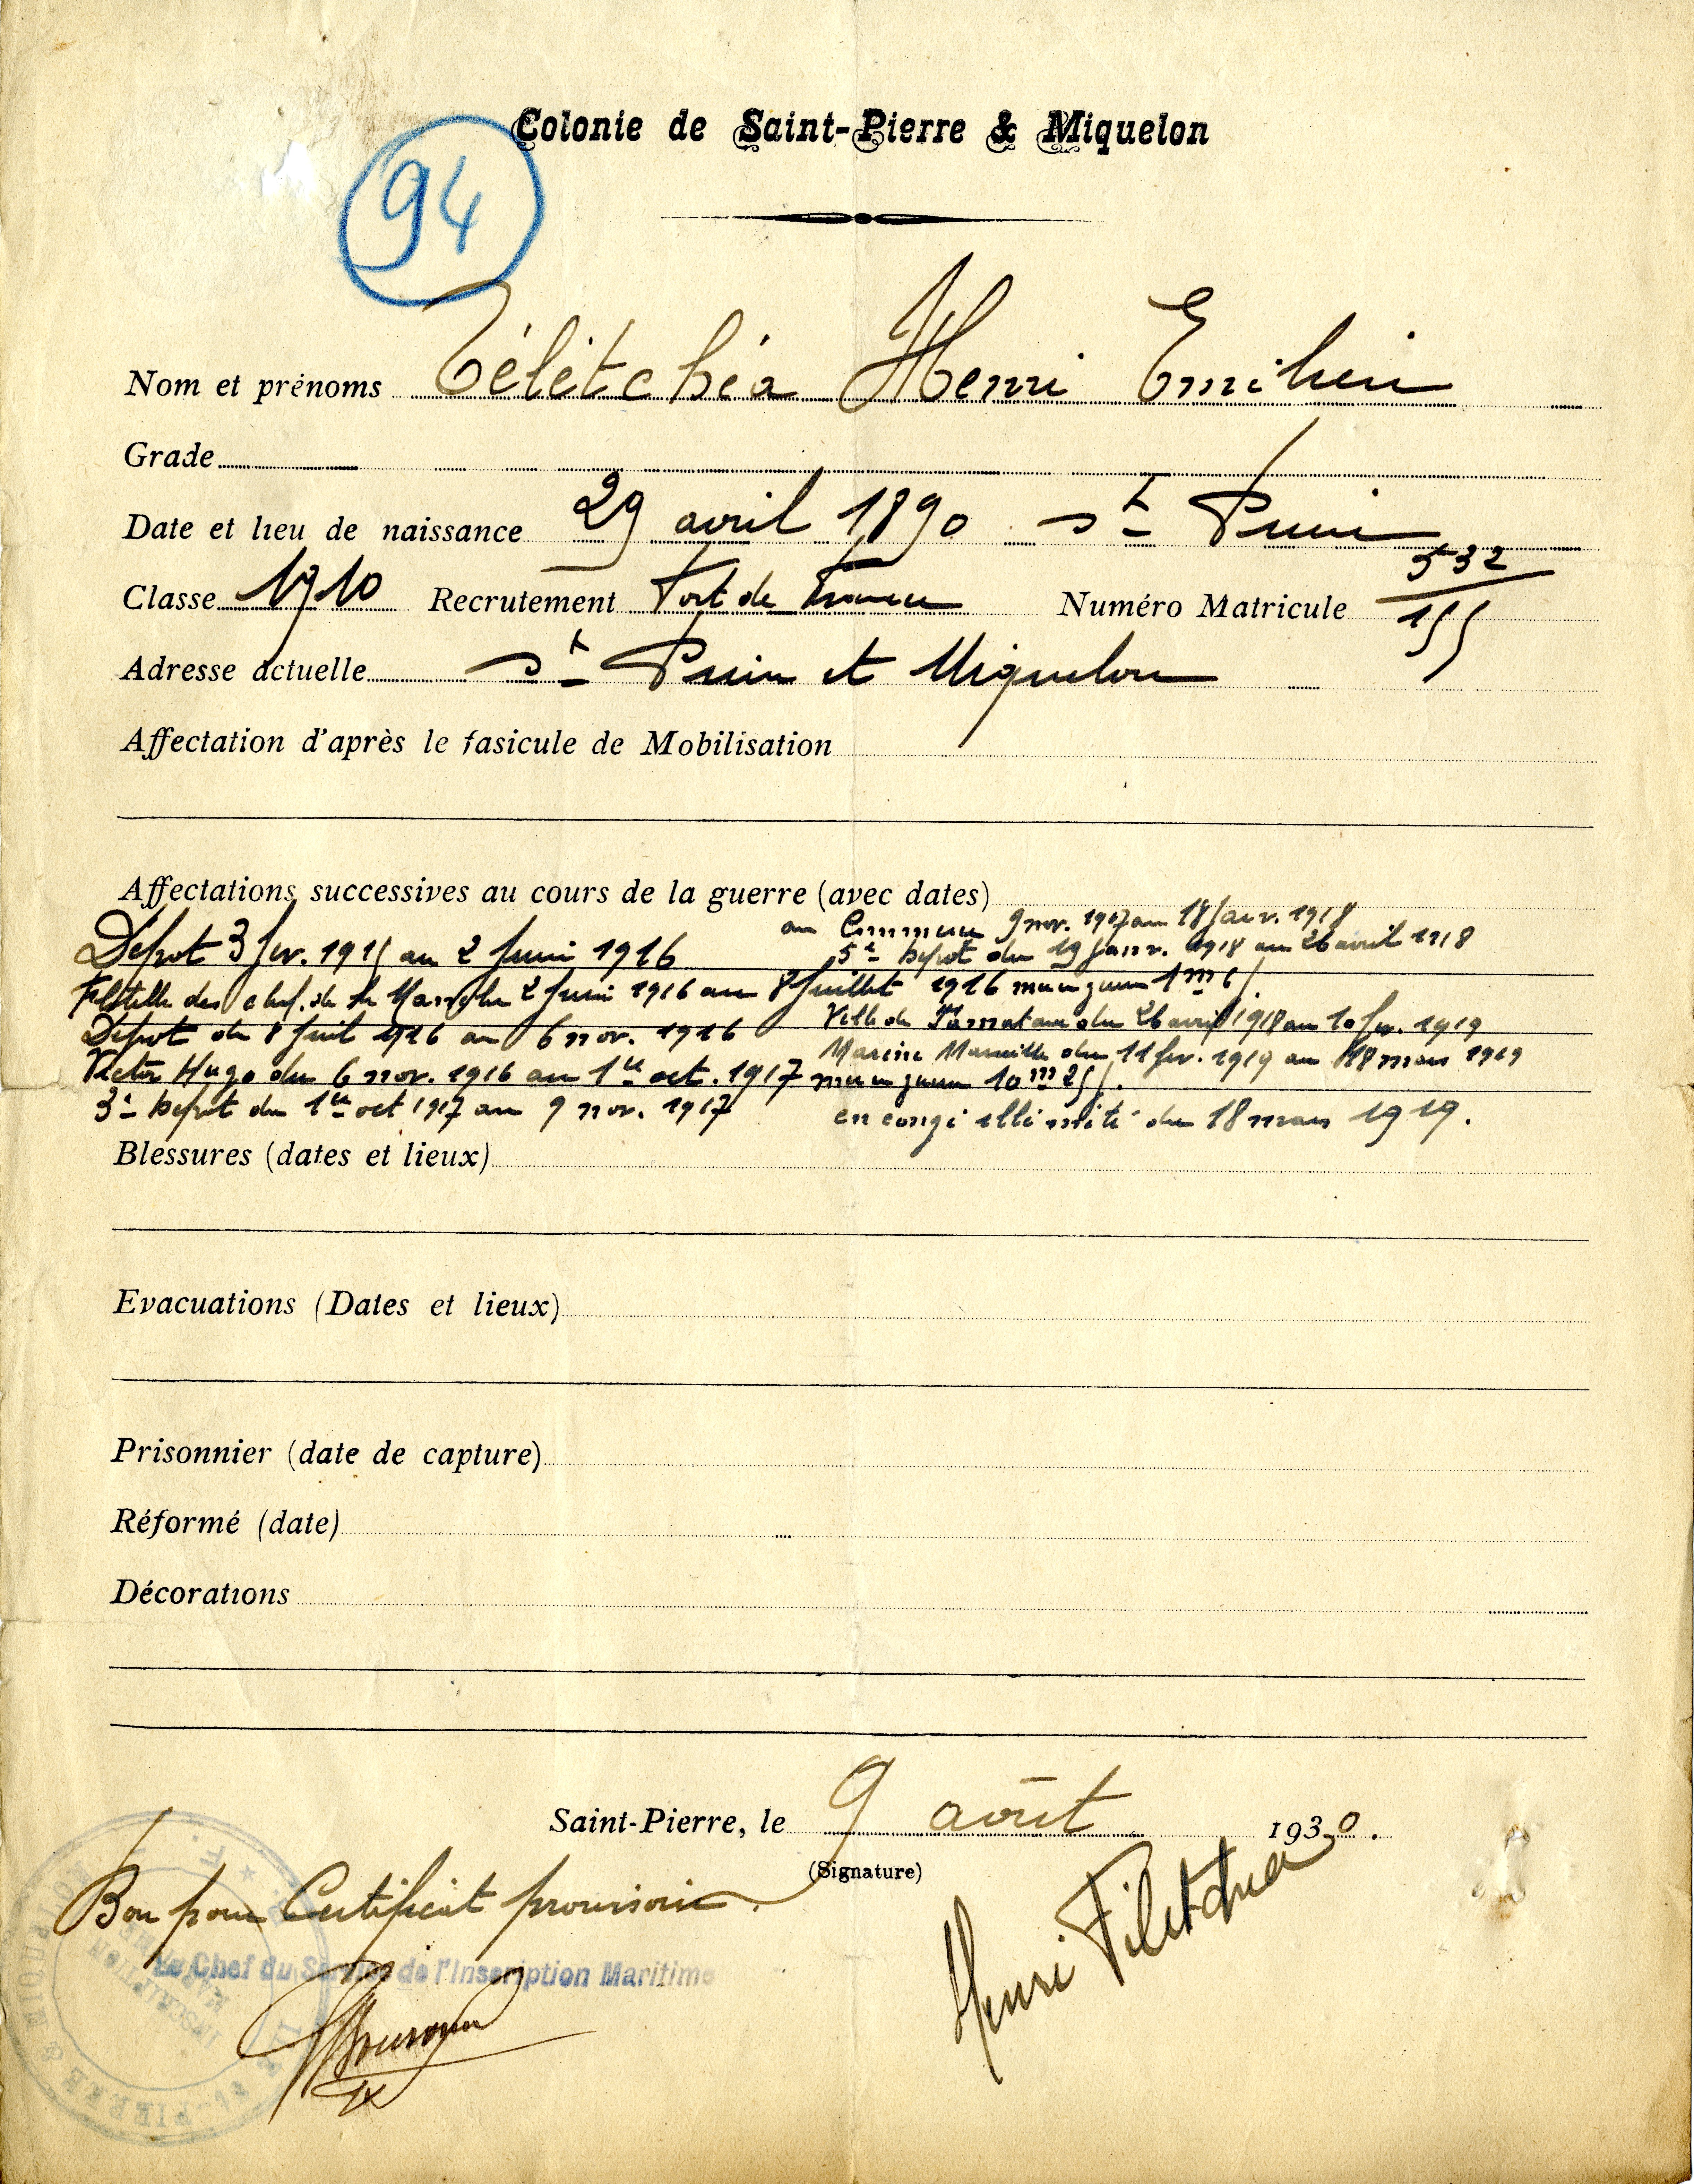 Colonie de Saint-Pierre & Miquelon
94
Nom et prénoms Télétchéa Henri Emilien
Grade
Date et lieu de naissance 29 avril 1890 St Pierre
Classe 1910 Recrutement Fort de France Numéro Matricule 532/155
Adresse actuelle St Pierre et Miquelon
Affectation d'après le fasicule de Mobilisation
Affectations successives au cours de la guerre (avec dates)
au Commerce 9 nov. 1917 au 18 Janv. 1918
Dépot 3 fev. 1915 au 2 Juin 1916
5e Dépot du 19 Janv. 1918 au 26 avril 1918
Flotille des chal. de la Manche 2 Juin 1916 au 8 Juillet 1916 mer en guerre 1m 6j.
Dépot du 8 Juil 1916 au 6 nov. 1916
Ville de Tamatave du 26 avril 1918 au 10 fev. 1919
Victor Hugo du 6 nov. 1916 au 1er oct. 1917
Marine Marseille du 11 fev. 1919 au 18 mars 1919
mer en guerre 10m 25j.
3e Dépot du 1er oct 1917 au 9 nov. 1917
en congé illimité du 18 mars 1919.
Blessures (dates et lieux)
Evacuations (Dates et lieux)
Prisonnier (date de capture)
Réformé (date)
Décorations
Saint-Pierre, le 9 août 1930.
(Signature)
Bon pour Certificat provisoire.
Henri Téletchea
Le Chef du Service de l'Inscription Maritime
ST-PIERRE & MIQUELON
INSCRIPTION MARITIME